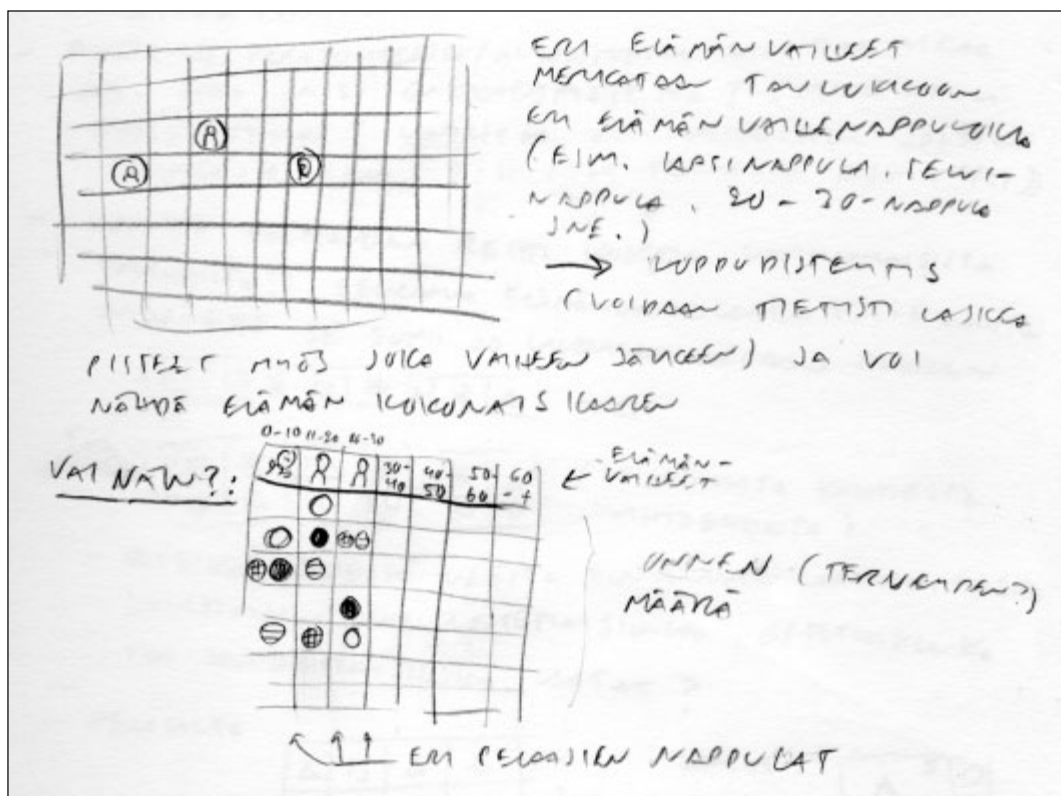 ERI ELÄMÄN VAIHEET
MERKATAAN TAULUKKOON
ERI ELÄMÄN VAIHENAPPULOILLA
(ESIM. LAPSINAPPULA, TEINI-
NAPPULA, 20-30-NAPPULA
JNE.)
→ LOPPUPISTEYTYS
(VOIDAAN TIETYSTI LASKEA
PISTEET MYÖS JOKA VAIHEEN JÄLKEEN) JA VOI
NÄHDÄ ELÄMÄN KOKONAISKAAREN
0-10 11-20
VAI NÄIN?:
30-40 40-50 50-60 60-+
← ELÄMÄN-
VAIHEET
ONNEN (TERVEYDEN?)
MÄÄRÄ
ERI PELAAJIEN NAPPULAT